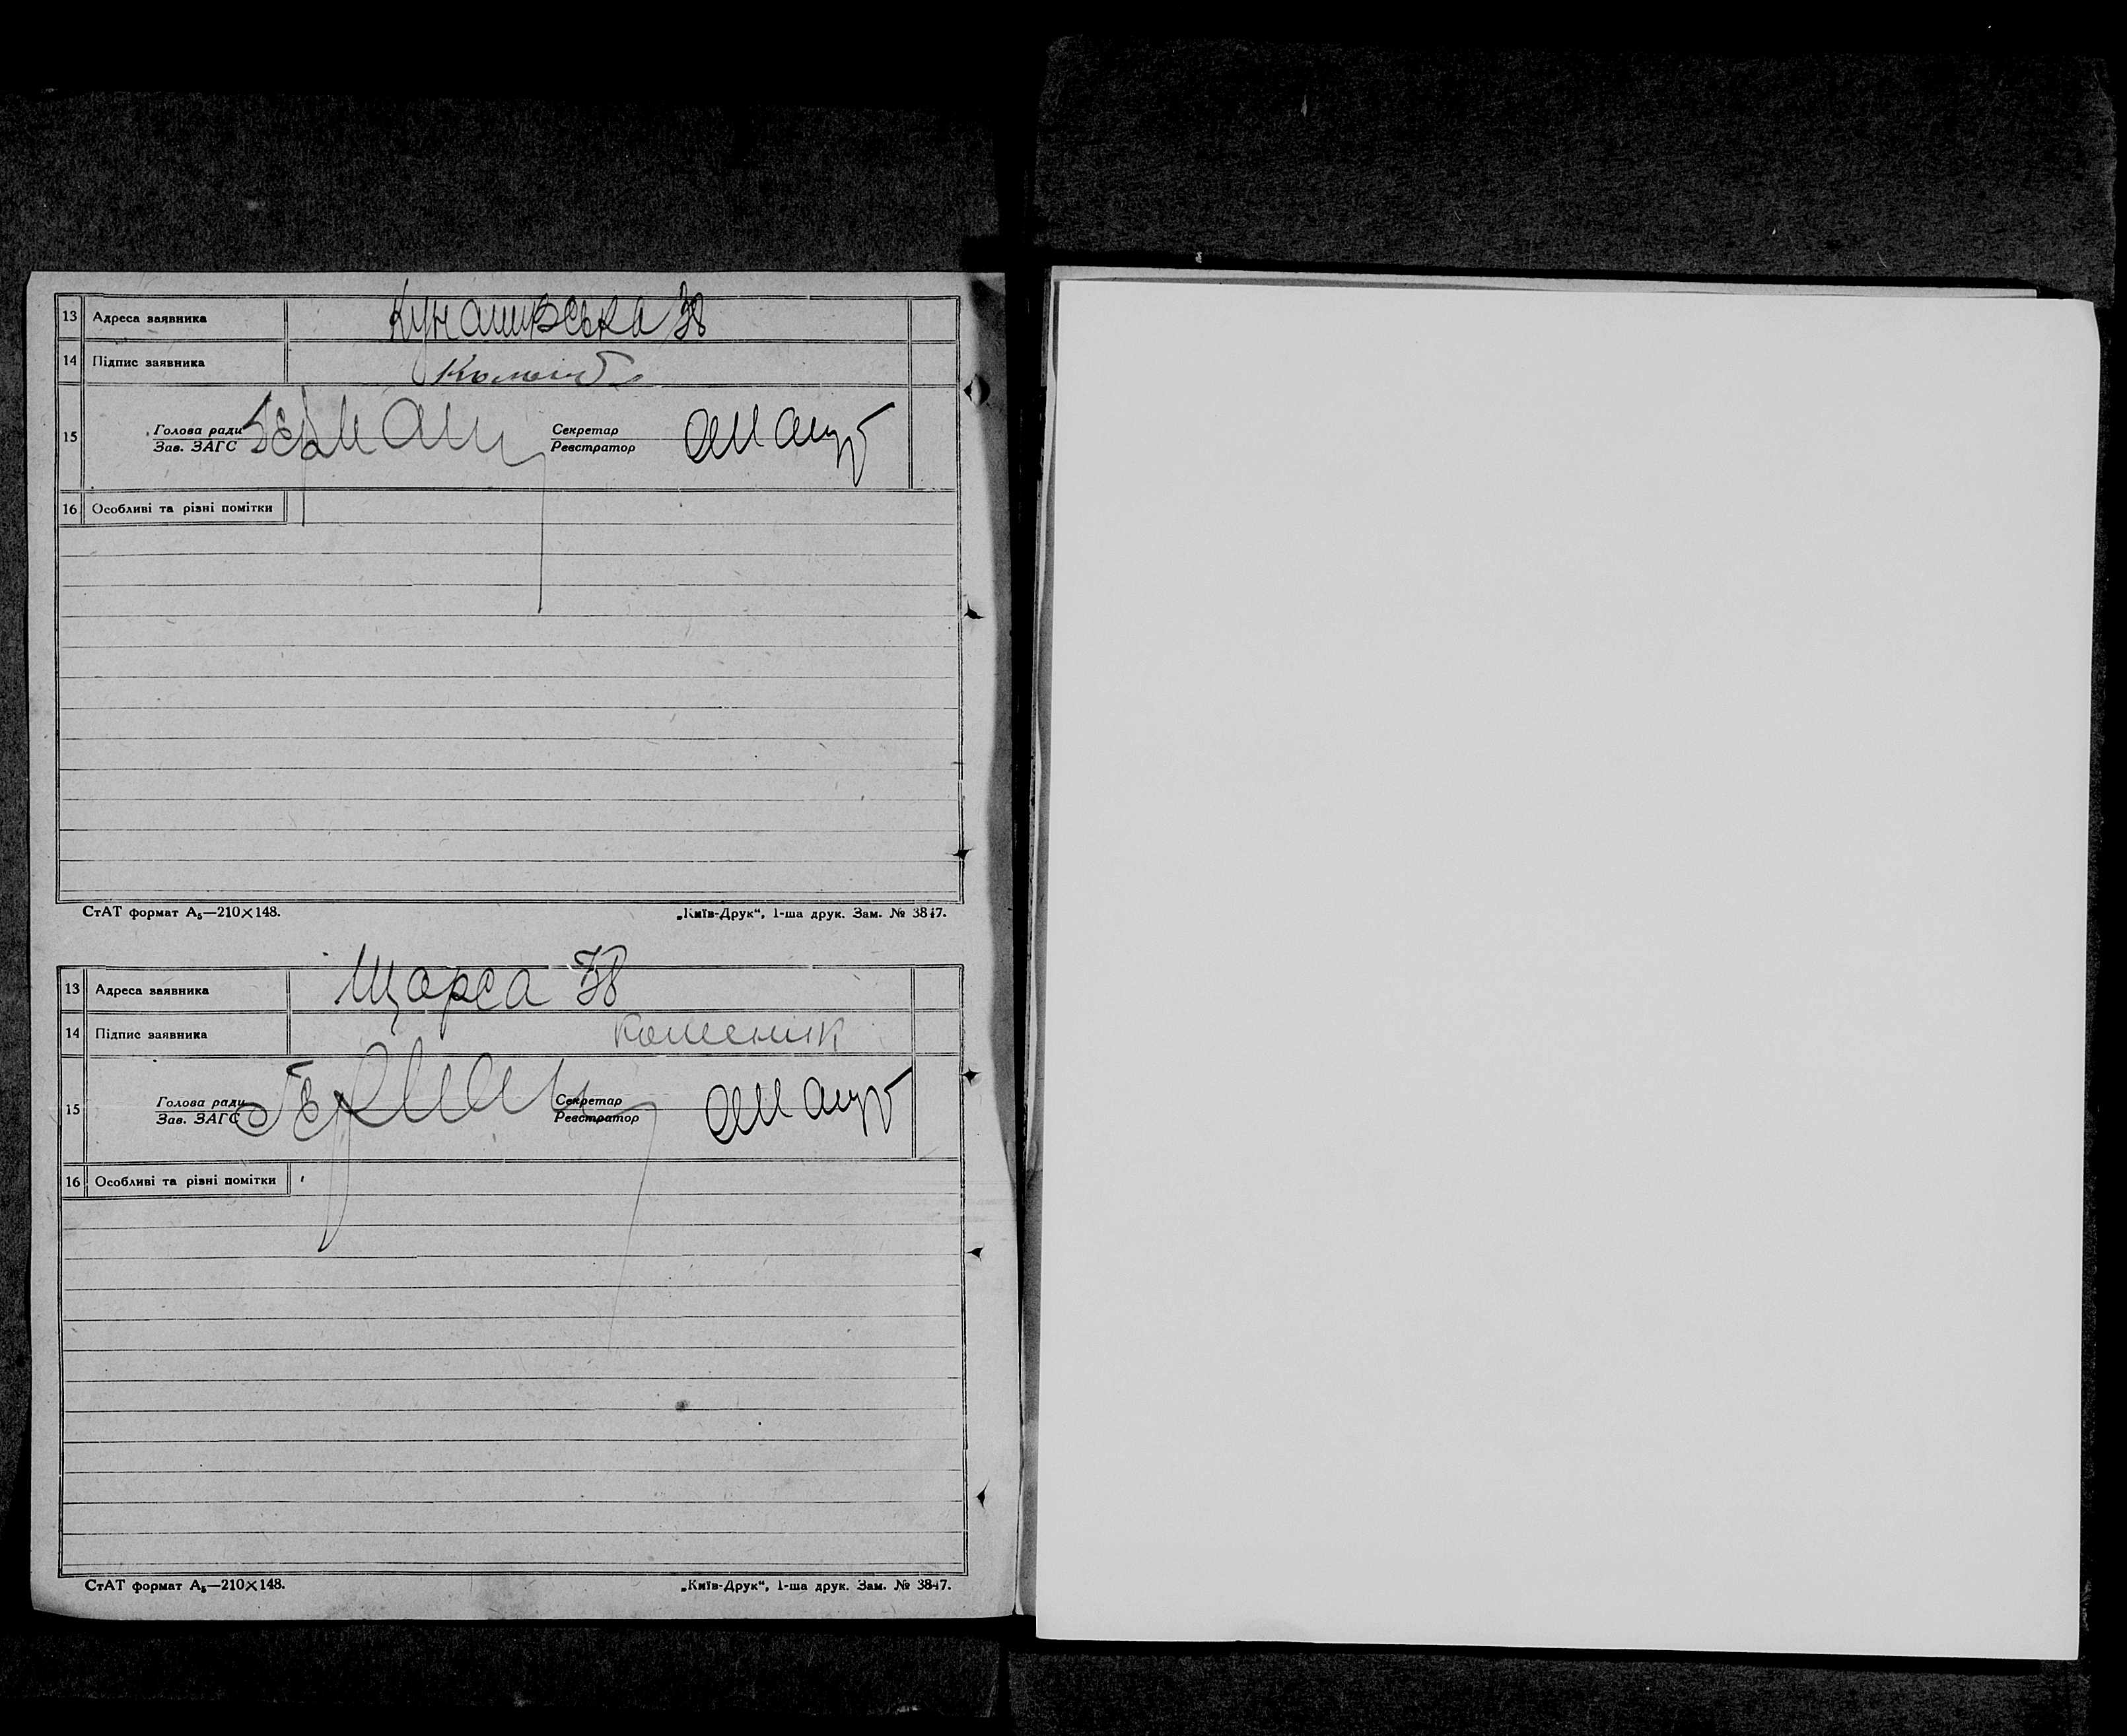 13 Адреса заявника Кунашивська 38
14 Підпис заявника
15 Голова ради Секретар
Зав. ЗАГС Герман Реєстратор
16 Особливі та різні помітки
СтАТ формат А₅—210×148. „Київ-Друк“, 1-ша друк. Зам. № 3847.
13 Адреса заявника Щорса 38
14 Підпис заявника Коменик
15 Голова ради Секретар
Зав. ЗАГС Герман Реєстратор
16 Особливі та різні помітки
СтАТ формат А₅—210×148. „Київ-Друк“, 1-ша друк. Зам. № 3847.